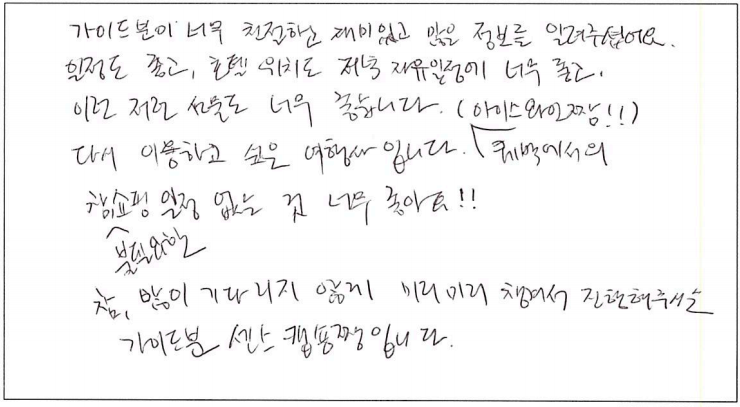 가이드분이 너무 친절하고 재미있고 많은 정보를 알려주셨어요.
일정도 좋고, 호텔 위치도 저녁 자유일정에 너무 좋고,
이런 저런 선물도 너무 좋습니다. (아이스와인 짱!!)
다시 이용하고 싶은 여행사 입니다. 퀘벡에서의
참, 쇼핑 일정 없는 것 너무 좋아요!!
불필요한
참, 많이 기다리지 않게 미리미리 챙여서 진행해주시는
가이드분 센스 캡숑짱입니다.